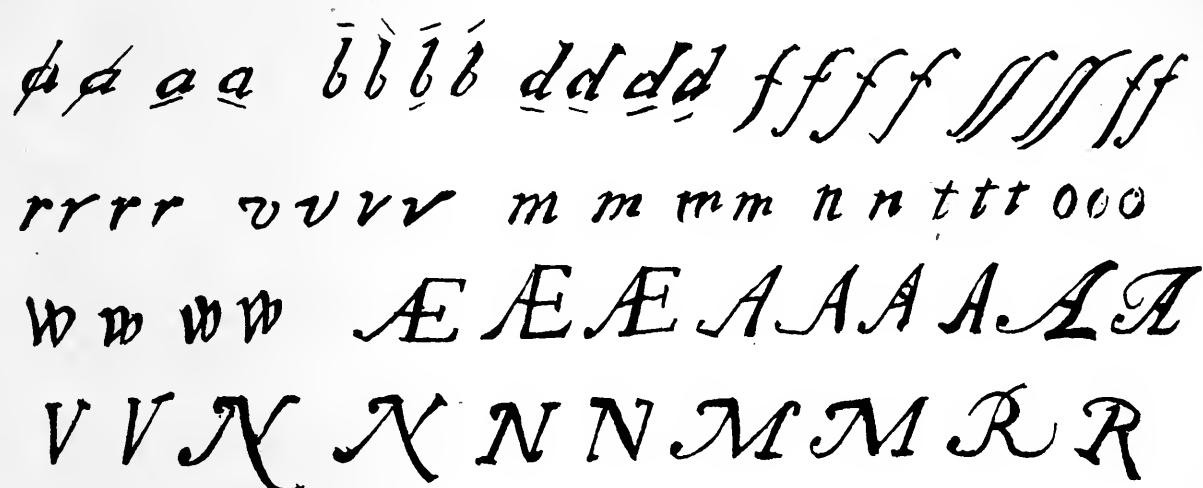 a a a a b b b b d d d d f f f f ſſ ſſ ff
r r r r v v v v m m m m n n t t t o o o
w w w w Æ Æ Æ A A A A A A
V V N N N N M M R R